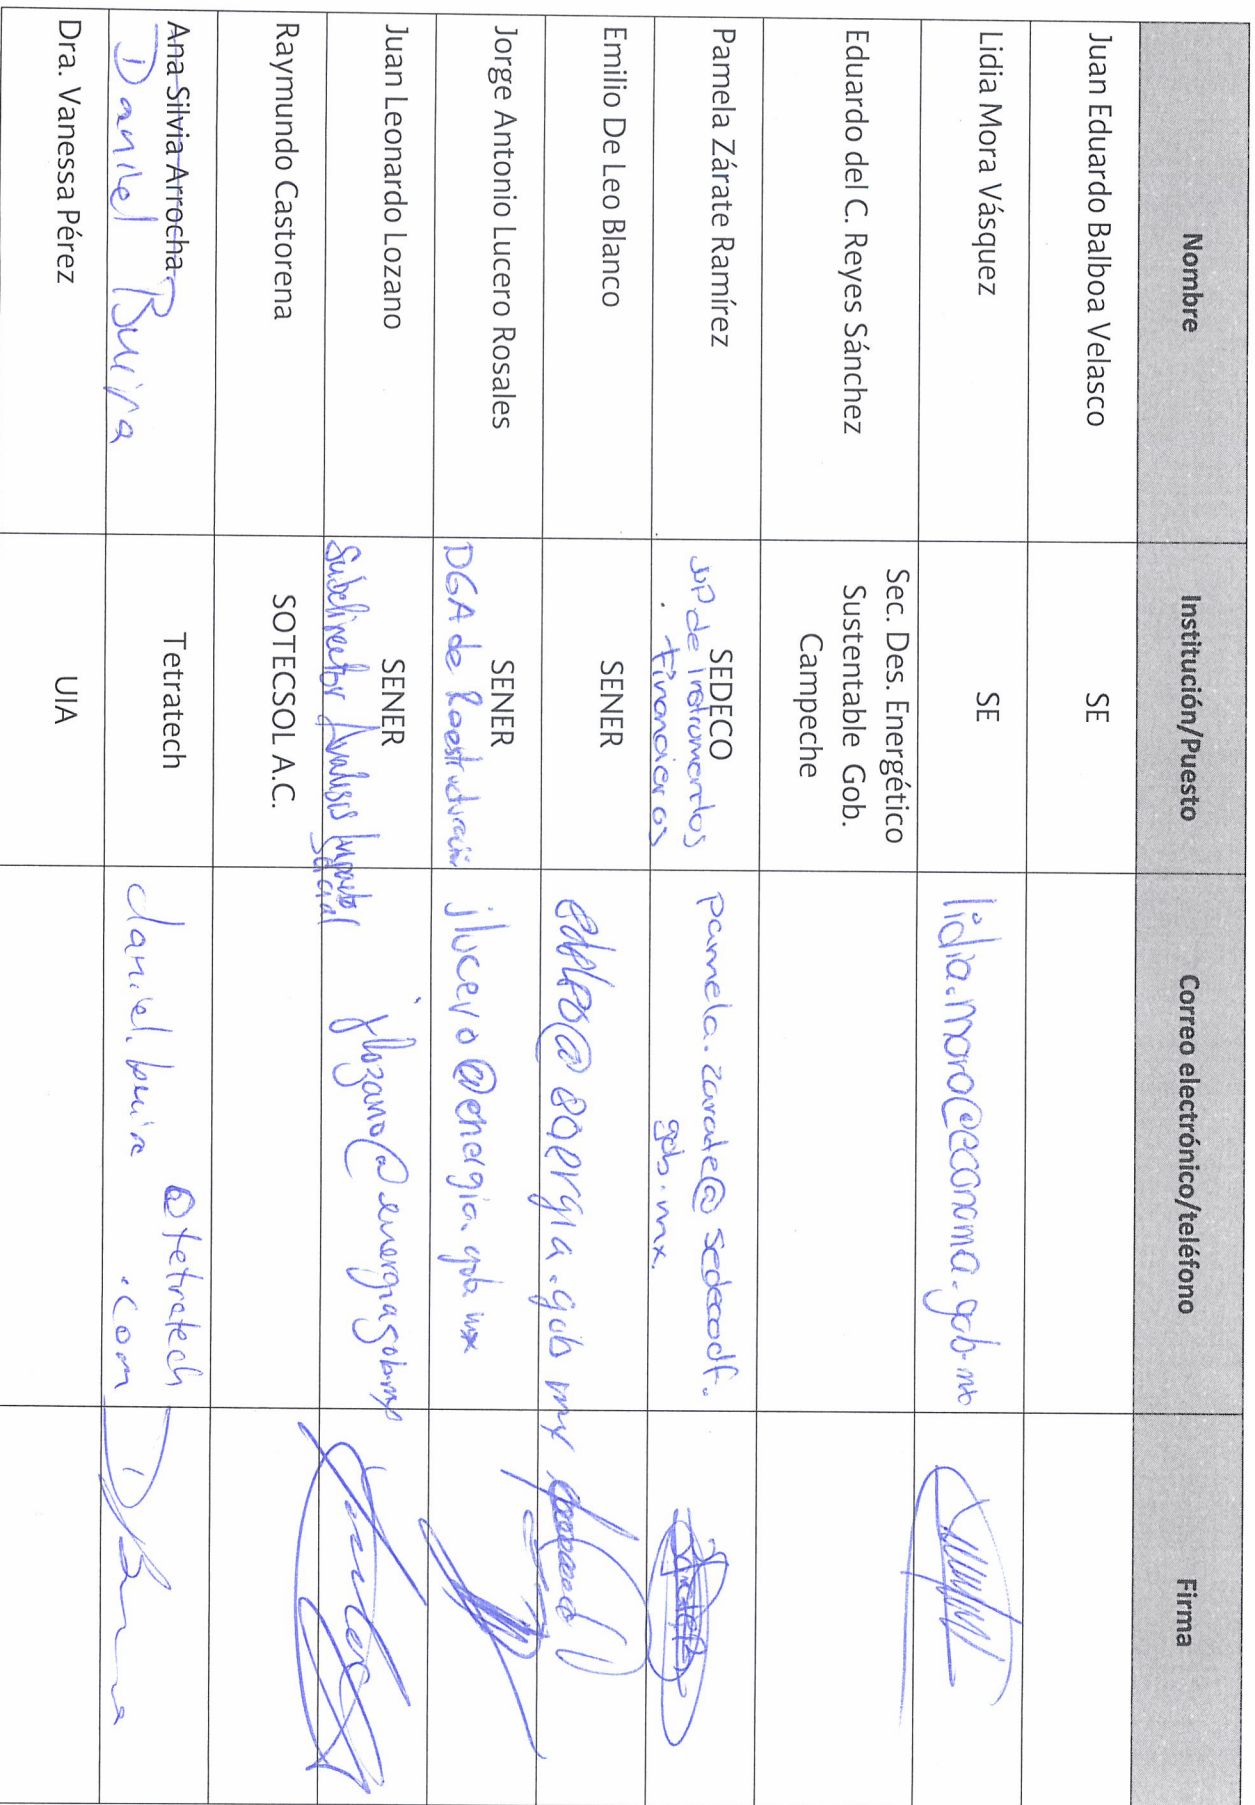 Nombre Institución/Puesto Correo electrónico/teléfono Firma
Juan Eduardo Balboa Velasco SE
Lidia Mora Vásquez SE lidia.mora@economia.gob.mx
Eduardo del C. Reyes Sánchez
Sec. Des. Energético
Sustentable Gob.
Campeche
Pamela Zárate Ramírez
SEDECO
JUD de Instrumentos
Financieros
pamela.zarate@sedecodf.
gob.mx.
Emilio De Leo Blanco SENER edeleo@energia.gob.mx
Jorge Antonio Lucero Rosales
SENER
DGA de Reestructuración
jlucero@energia.gob.mx
Juan Leonardo Lozano
SENER
Subdirector Análisis Impacto
Social
jlozano@energia.gob.mx
Raymundo Castorena SOTECSOL A.C.
Ana Silvia Arrocha
Daniel Buira
Tetratech
daniel.buira @tetratech
.com
Dra. Vanessa Pérez UIA